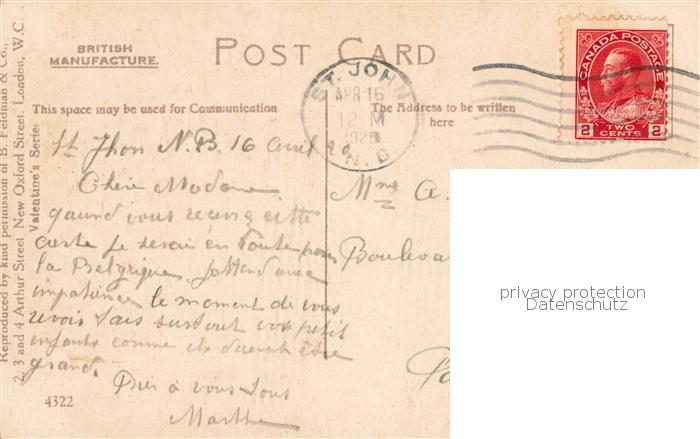 BRITISH
MANUFACTURE.
POST CARD
This space may be used for Communication.
The Address to be written
here
Reproduced by kind permission of B. Feldman & Co.,
2, 3 and 4 Arthur Street, New Oxford Street, London, W.C.
Valentine's Series
ST. JOHN
APR 16
12 M
N.B
CANADA POSTAGE
2 TWO CENTS 2
St Jhon N.B. 16 avril 20
Chère Madame
quand vous recevez cette
carte je serai en route pour
la Belgique j'attend avec
impatience le moment de vous
revoir sais surtout vos petit
enfants comme ils doivent être
grand.
à vous tous
Marthe
Mme A.
Bouleva
4322
privacy protection
Datenschutz